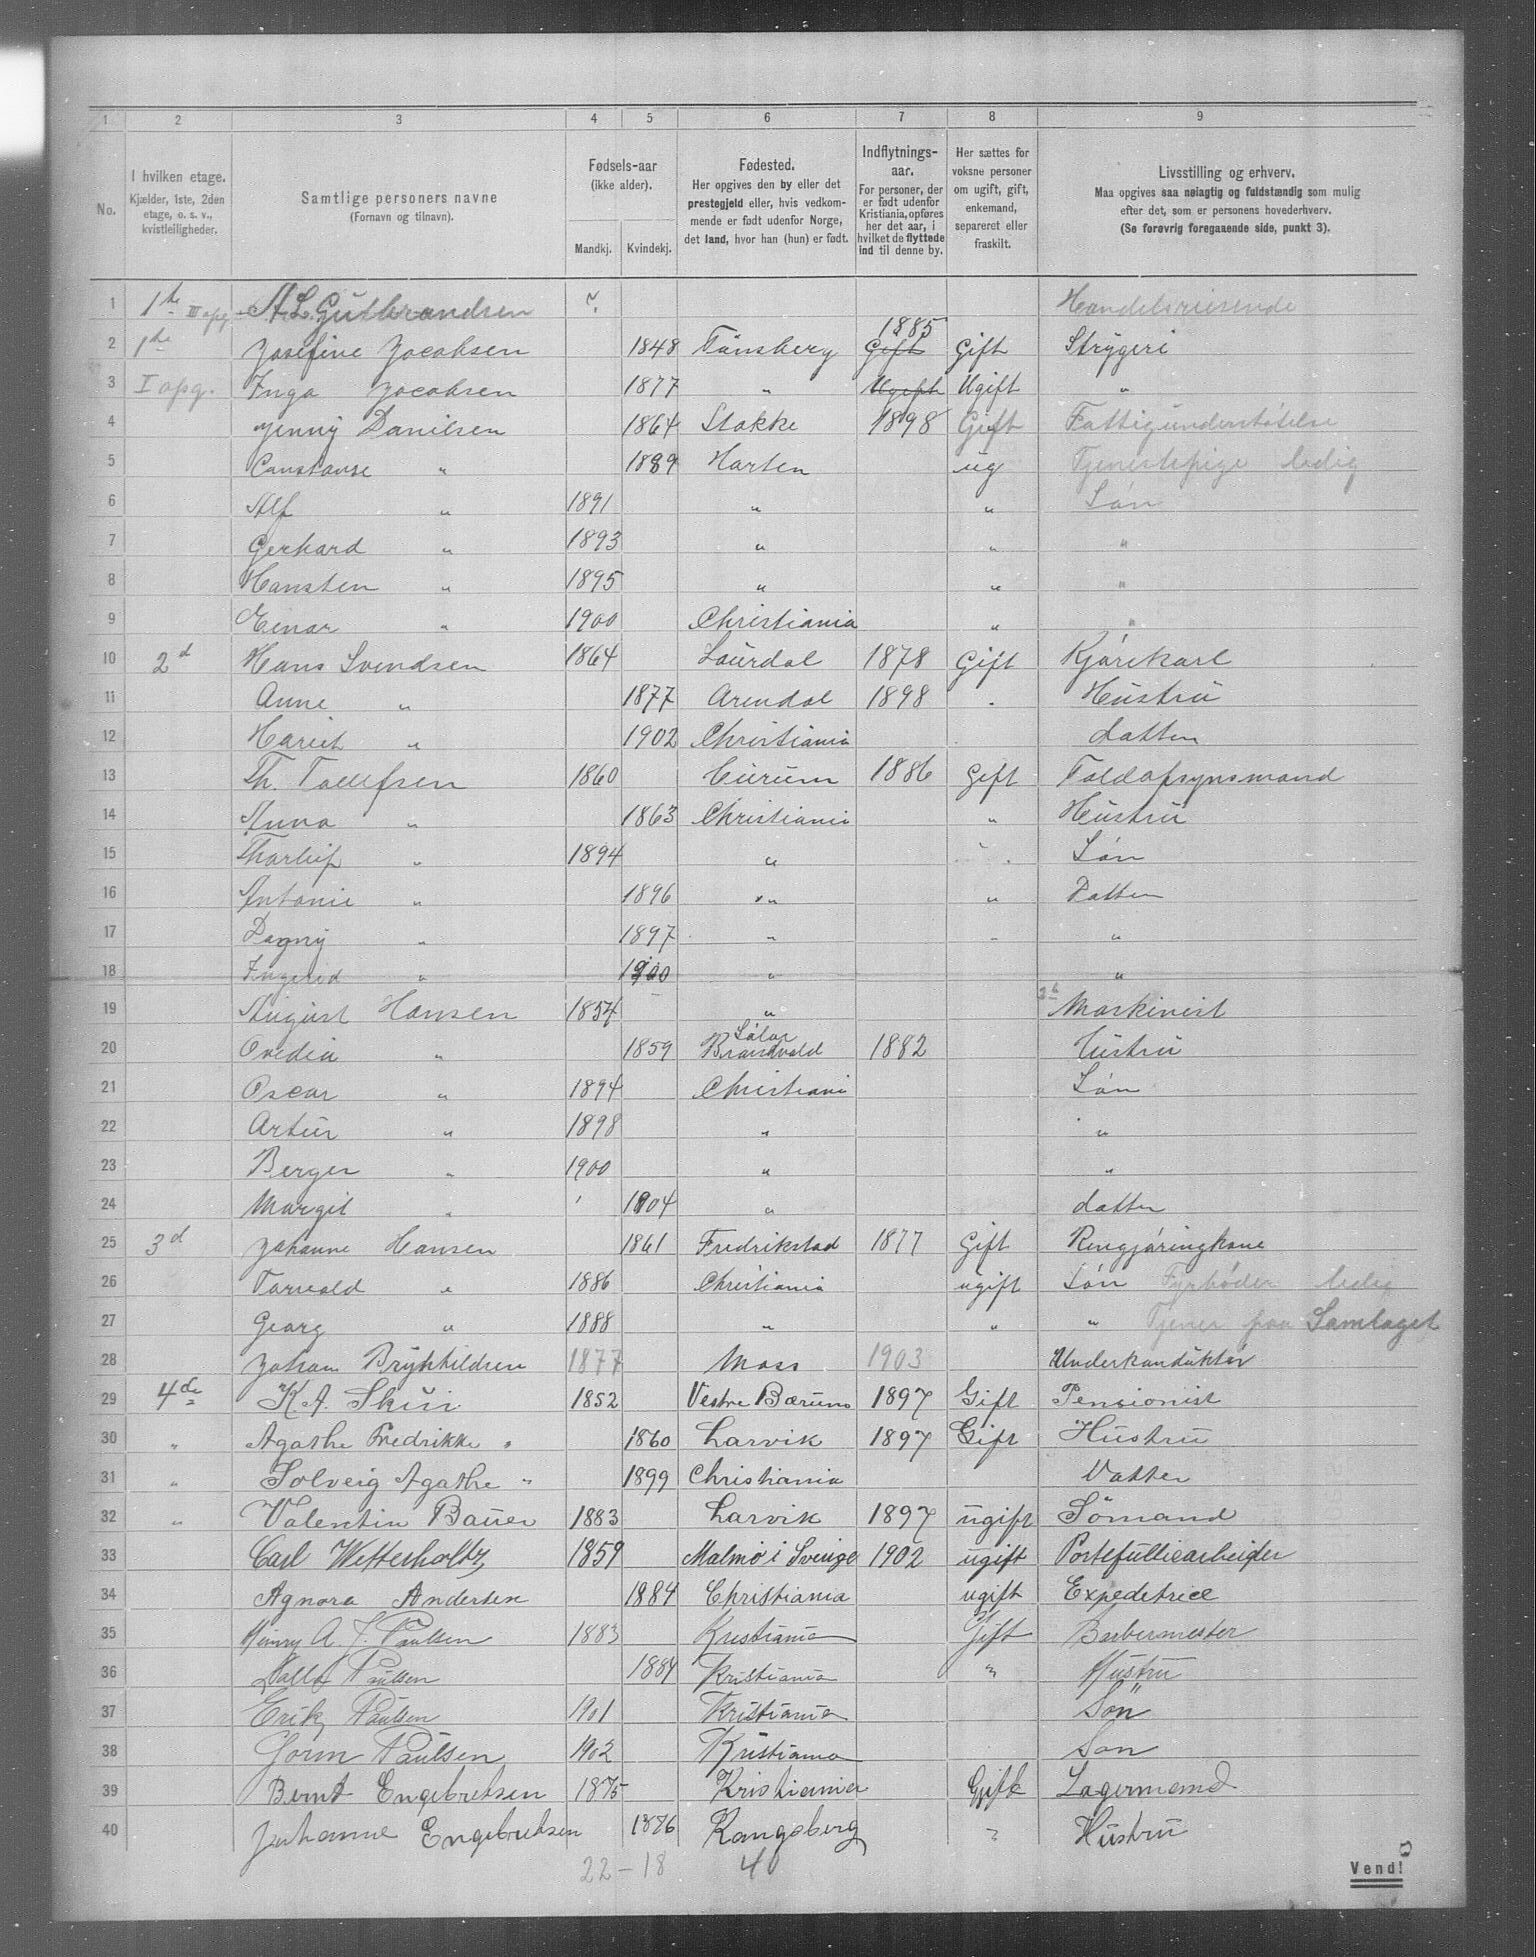 1 2 3 4 5 6 7 8 9
No.
I hvilken etage.
Kjælder, 1ste, 2den
etage, o. s. v.,
kvistleiligheder.
Samtlige personers navne
(Fornavn og tilnavn).
Fødsels-aar
(ikke alder).
Mandkj. Kvindekj.
Fødested.
Her opgives den by eller det
prestegjeld eller, hvis vedkom-
mende er født udenfor Norge,
det land, hvor han (hun) er født.
Indflytnings-
aar.
For personer, der
er født udenfor
Kristiania, opføres
her det aar, i
hvilket de flyttede
ind til denne by.
Her sættes for
voksne personer
om ugift, gift,
enkemand,
separeret eller
fraskilt.
Livsstilling og erhverv.
Maa opgives saa nøiagtig og fuldstændig som mulig
efter det, som er personens hovederhverv.
(Se forøvrig foregaaende side, punkt 3).
1 1te III opg A L Gulbrandsen Handelsreisende
2 1te Josefine Jacobsen 1848 Tønsberg Gift 1885 Gift Strygeri
3 I opg. Inga Jacobsen 1877 " Ugift Ugift "
4 Jenny Danielsen 1864 Stokke 1898 Gift Fattigunderstøtelse
5 Constanse " 1889 Horten ug Tjenestepige ledig
6 Alf " 1891 " " Søn
7 Gerhard " 1893 " " "
8 Hansten " 1895 " " "
9 Einar " 1900 Christiania " "
10 2d Hans Svendsen 1864 Laurdal 1878 Gift Kjørekarl
11 Anne " 1877 Arendal 1898 Hustru
12 " 1902 Christiania datter
13 Th. Tollefsen 1860 1886 Gift Toldopsynsmand
14 Anna " 1863 Christiania " Hustru
15 Thorleif " 1894 " Søn
16 Antonie " 1896 " " Datter
17 Dagny " 1897 " "
18 Ingerid " 1900 " "
19 August Hansen 1854 " Maskinist
20 Ovedia " 1859 Solør Brandvold 1882 Hustru
21 Oscar " 1894 Christiani Søn
22 Artur " 1898 " "
23 Berger " 1900 " "
24 Margit " 1904 " datter
25 3d Johanne Hansen 1861 Fredrikstad 1877 Gift Rengjøringkone
26 Torvald " 1886 Christiania ugift Søn Fyrbøder ledig
27 Georg " 1888 " " " Tjener paa Samlaget
28 Johan Brynhildsen 1877 Moss 1903 Underkonduktør
29 4de K. A. Skui 1852 Vestre Bærum 1897 Gift Pensionist
30 " Agathe Fredrikke " 1860 Larvik 1897 Gift Hustru
31 " Solveig Agathe " 1899 Christiania Datter
32 " Valentin Bauer 1883 Larvik 1897 ugift Sømand
33 Carl Wetterholtz 1859 Malmø i Sverige 1902 ugift Portefølliearbeider
34 Agnora Andersen 1884 Christiania ugift Expeditrice
35 Henry A. J. Paulsen 1883 Kristiania Gift Barbermester
36 Paulsen 1884 Kristiania " Hustru
37 Erik Paulsen 1901 Kristiania Søn
38 Gorm Paulsen 1902 Kristiania Søn
39 Bernt Engebretsen 1875 Kristiania Gift Lagermand
40 Johanne Engebretsen 1876 Kongsberg " Hustru
22-18 40
Vend!